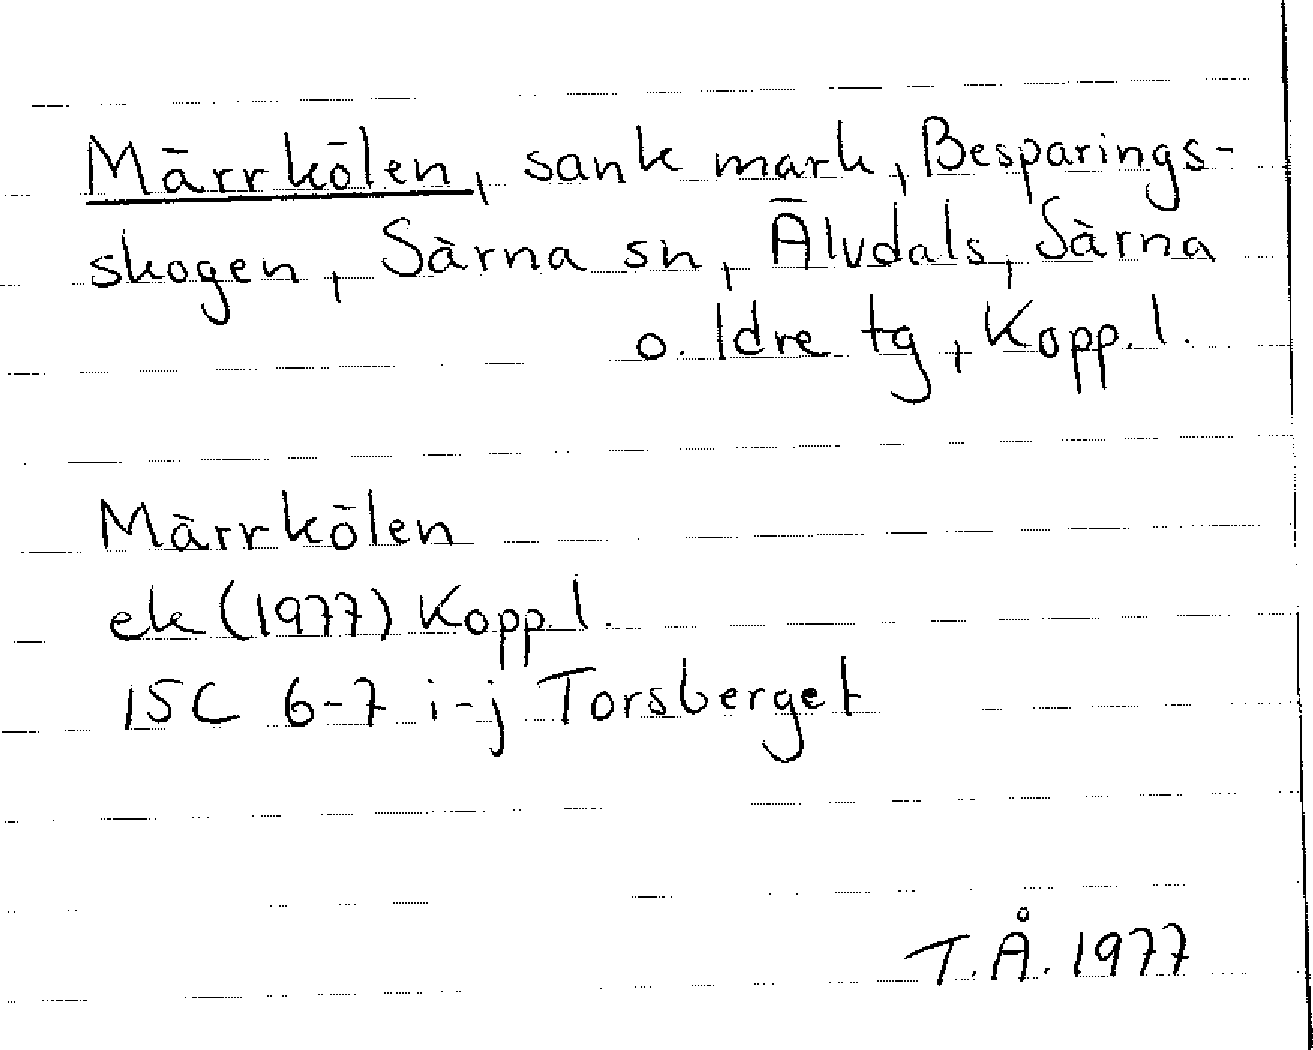 Märrkölen, sank mark, Besparings-
skogen, Särna sn, Älvdals, Särna
o. Idre tg, Kopp. l.
Märrkölen
ek (1977) Kopp. l.
15C 6-7 i-j Torsberget
T.Å. 1977